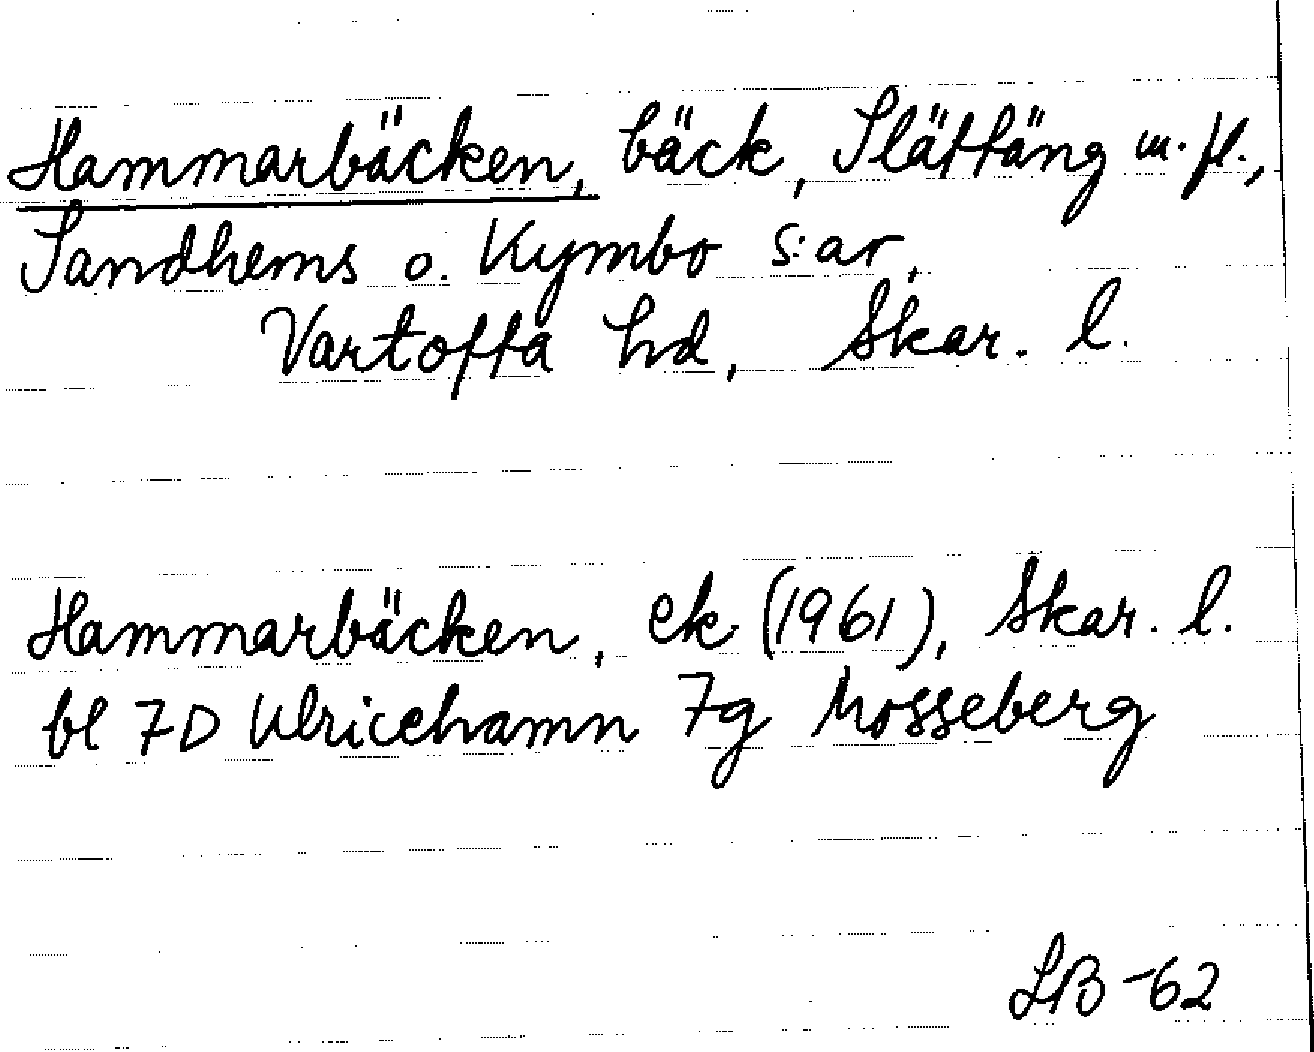 Hammarbäcken, bäck, Slättäng m. fl.,
Sandhems o. Kymbo s:ar,
Vartofta hd, Skar. l.
Hammarbäcken, ek (1961), Skar. l.
bl 7D Ulricehamn 7g Mosseberg
LB -62